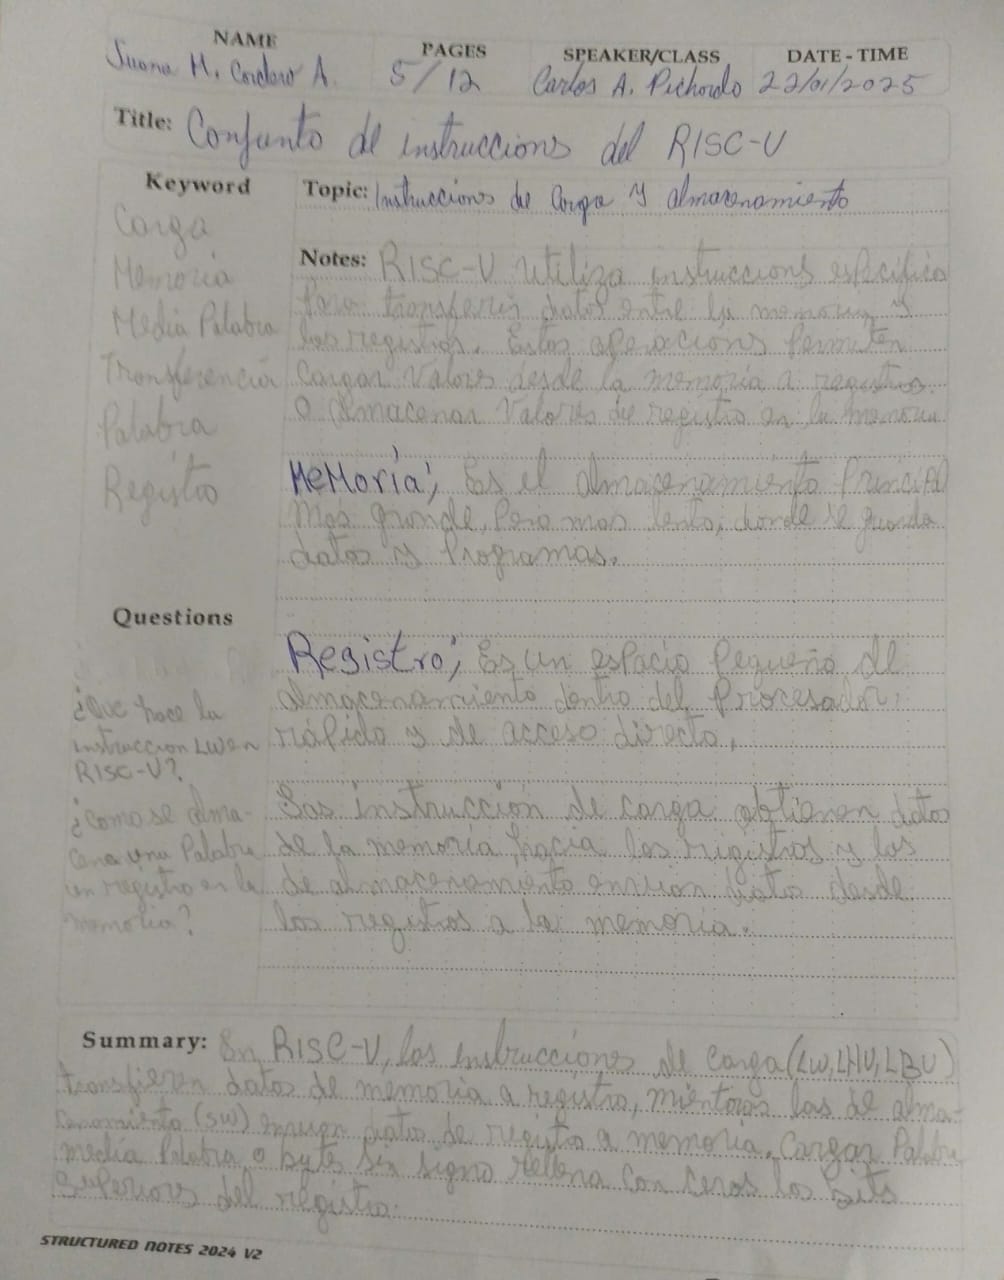 NAME PAGES SPEAKER/CLASS DATE - TIME
Juana M. Cordero A. 5/12 Carlos A. Pichardo 22/01/2025
Title: Conjunto de instruccions del RISC-V
Keyword
Carga
Memoria
Media Palabra
Transferencia
Palabra
Registro
Topic: Instruccions de Carga y almacenamiento
Notes: RISC-V utiliza instruccions especifica
para transferir datos entre la memoria y
los registros. Estas operacions permiten
Cargar Valores desde la memoria a registros
o almacenar Valores de registro en la memoria
MeMoria; Es el almacenamiento Principal
mas grande, Pero mas lento, donde se guarda
datos y Programas.
Registro; Es un espacio Pequeño de
almacenamiento dentro del Procesador;
rápido y de acceso directo.
Las instrucción de carga obtienen datos
de la memoria hacia los registros y los
de almacenamiento envian datos desde
los registros a la memoria.
Questions
¿Que hace la
instruccion LW en
RISC-V?
¿como se alma-
cena una Palabra
en registro en la
memoria?
Summary: En RISC-V, las instrucciones de carga (LW, LHU, LBU)
transfieren datos de memoria a registro, mientras las de alma-
cenamiento (SW) envian datos de registro a memoria. Cargar Palabra
media Palabra o bytes sin signo rellena con ceros los Bits
Superiores del registro.
STRUCTURED NOTES 2024 V2